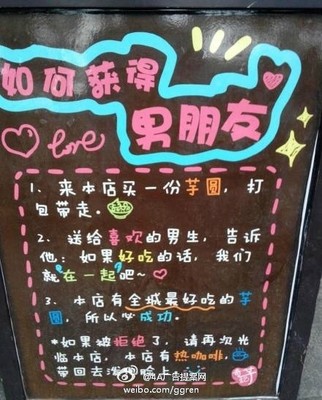 如何获得
男朋友
love
1、来本店买一份芋圆，打
包带走。
2、送给喜欢的男生，告诉
他：如果好吃的话，我们
就在一起吧~
3、本店有全城最好吃的芋
圆，所以必成功。
*如果被拒绝了，请再次光
临本店，本店有热咖啡，
带回去泼他脸上
@4A广告提案网
weibo.com/ggren